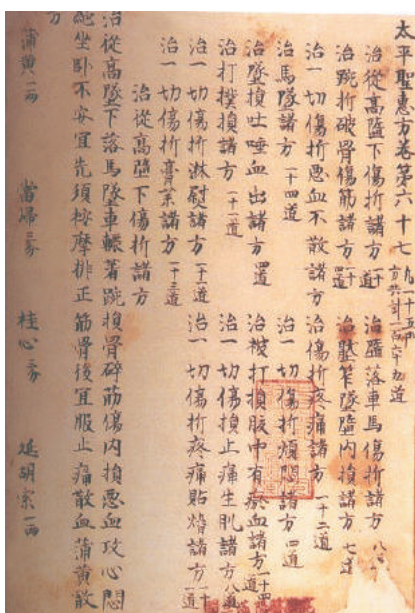 太平聖惠方卷第六十七
治從高墮下傷折諸方 治墮落車馬傷折諸方
治踠折破骨傷筋諸方 治壓笮墜墮內損諸方 七道
治一切傷折惡血不散諸方 治傷折疼痛諸方 一十二道
治馬墜諸方 一十四道 治一切傷折煩悶諸方 四道
治墜損吐唾血出諸方 治被打損腹中有瘀血諸方
治打撲損諸方 一十一道 治一切傷損止痛生肌諸方
治一切傷折淋熨諸方 一十一道 治一切傷折疼痛貼熁諸方
治一切傷折膏藥諸方 一十三道
治從高墮下傷折諸方
治從高墜下落馬墜車輾著踠損骨碎筋傷內損惡血攻心悶
絕坐臥不安宜先須按摩排正筋骨後宜服止痛散血蒲黃散
方
蒲黃一兩 當歸三分 桂心三分 延胡索一兩